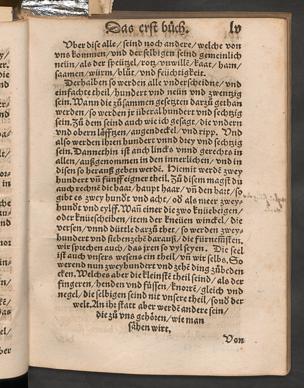 Das erst bůch. lv
Vber dise alle/ seind noch andere/ welche von
vns kommen/ vnd der selbigen seind gemeinlich
neün/ als der speützel/ rotz/ vnwille/ kaat/ harn/
saamen/ würm/ blůt/ vnd feüchtigkeit.
Derhalben so werden alle vnderscheidne/ vnd
einfachte theil/ hundert vnd neün vnd zwentzig
sein. Wann die zůsammen gesetzten darzů gethan
werden/ so werden jr überal hundert vnd sechtzig
sein. Zů dem seind auch wie ich gesagt/ die vndern
vnd obern läfftzen/ augendeckel/ vnd ripp. Vnd
also werden ihren hundert vnnd drey vnd sechtzig
sein. Dannethin ist auch lincks vnnd gerechts in
allen/ außgenommen in den innerlichen/ vnd in
disen so herauß geben werde. Hiemit werdē zwey
hundert vn fünff eigner theil. Zů disem magst du
auch rechnē die haar/ haupt haar/ vn den bat/ so
gibt es zwey hundt vnd acht/ od als mear zwey
hundt vnd eylff. Wan einer die zwo knüebeigen/
oder knüescheiben/ item der kneüen winckel/ die
versen/ vnnd düttle darzů thet/ so werden zwey
hundert vnd siebenzehē darauß/ die fürnemsten.
wir sprechen auch/ das jren so vyl seyen. Die seel
ist auch vnsers wesens ein theil/ vn wir selbs. So
werend nun zweyhunder vnd zehē ding zůbedē
cken. Welches aber die kleinste theil seind/ als der
fingeren/ henden vnd füssen/ knorrē/ gleich vnd
negel/ die selbigen seind nit vnsere theil/ sond der
welt. An ihr statt aber werdē andere sein/
die zů vns gehören/ wie man
sähen wirt.
Von